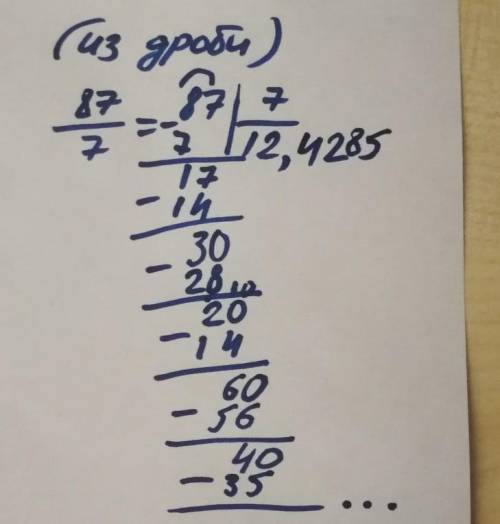 (из дроби)
87/7 = -87 | 7
7 | 12,4285
17
- 14
30
- 28
20
- 14
60
- 56
40
- 35
...